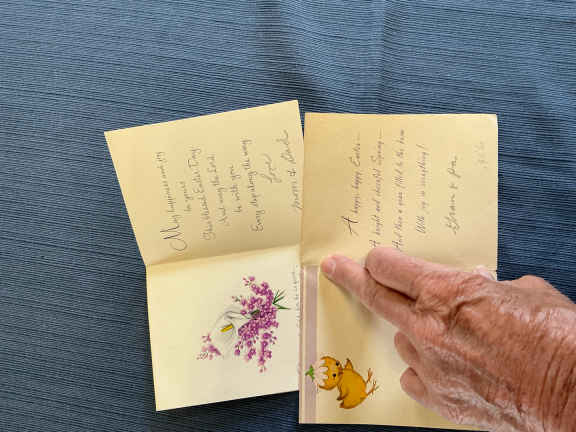 May happiness and joy
be yours
This blessed Easter Day
And may the Lord
be with you
Every step along the way
Love
Mom & Dad
A happy, happy Easter —
A bright and cheerful Spring —
And then a year filled to the brim
With joy in everything!
Gram & Pa